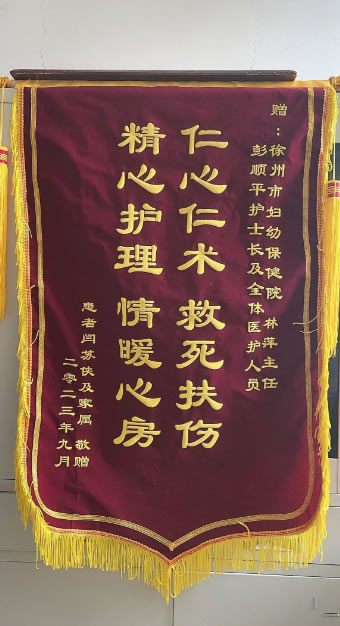 赠：徐州市妇幼保健院 林萍主任
彭顺平护士长及全体医护人员
仁心仁术 救死扶伤
精心护理 情暖心房
患者闫苏侠及家属 敬赠
二零二三年九月